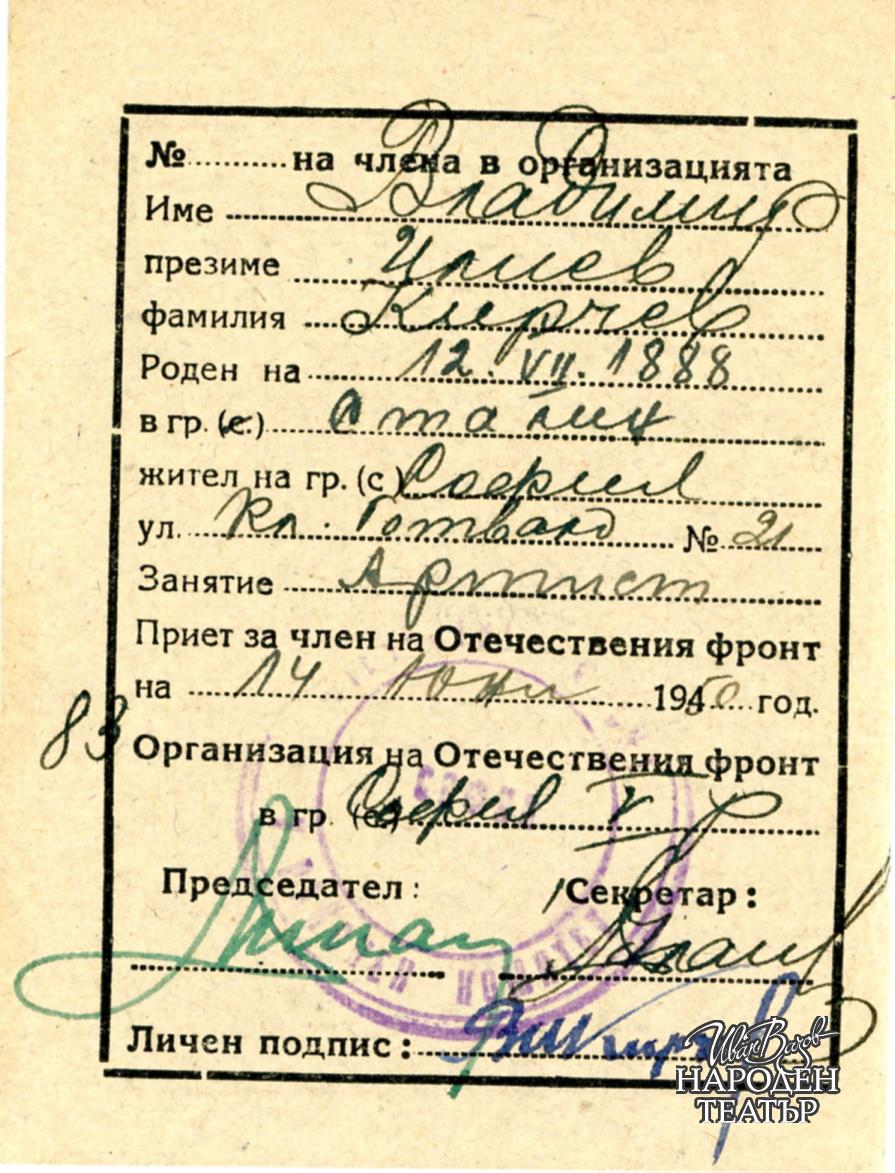 №.......... на члена в организацията
Име Владимир
презиме Илиев
фамилия Кирчев
Роден на 12. VII. 1888
в гр. (с.)
жител на гр. (с) София
ул. Кл. Готвалд № 21
Занятие Артист
Приет за член на Отечествения фронт
на 14 Юни 1950 год.
83
Организация на Отечествения фронт
в гр. (с.) София V р
Председател: Секретар:
Личен подпис:
Иван Вазов
НАРОДЕН
ТЕАТЪР